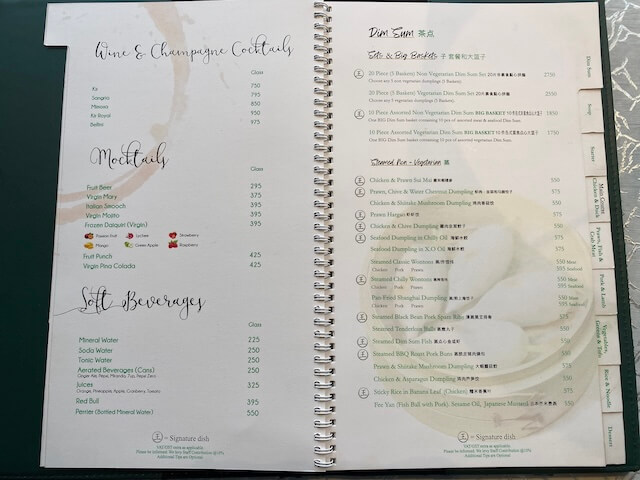 Wine & Champagne Cocktails
Glass
Kir 750
Sangria 795
Mimosa 850
Kir Royal 950
Bellini 975
Mocktails
Glass
Fruit Beer 295
Virgin Mary 375
Italian Smooch 395
Virgin Mojito 395
Frozen Daiquiri (Virgin) 395
Passion Fruit Lychee Strawberry
Mango Green Apple Raspberry
Fruit Punch 425
Virgin Pina Colada 425
Soft Beverages
Glass
Mineral Water 225
Soda Water 250
Tonic Water 250
Aerated Beverages (Cans) 250
Ginger Ale, Pepsi, Mirinda, 7up, Pepsi Zero
Juices 325
Orange, Pineapple, Apple, Cranberry, Tomato
Red Bull 395
Perrier (Bottled Mineral Water) 550
= Signature dish
VAT/GST extra as applicable
Please be informed: We levy Staff Contribution @
Additional Tips are Optional
Dim Sum 茶点
Sets & Big Baskets
20 Piece (5 Baskets) Non Vegetarian Dim Sum Set 2750
Choose any 5 non vegetarian dumplings (5 Baskets)
20 Piece (5 Baskets) Vegetarian Dim Sum Set
Choose any 5 vegetarian dumplings (5 Baskets)
10 Piece Assorted Non Vegetarian Dim Sum BIG BASKET 1850
One BIG Dim Sum basket containing 10 pcs of assorted meat & seafood Dim Sum
10 Piece Assorted Vegetarian Dim Sum BIG BASKET 1750
One BIG Dim Sum basket containing 10 pcs of assorted vegetarian Dim Sum
Steamed Non - Vegetarian 蒸
Chicken & Prawn Sui Mai 550
Prawn, Chive & Water Chestnut Dumpling 575
Chicken & Shiitake Mushroom Dumpling 550
Prawn Hargau 575
Chicken & Chive Dumpling 550
Seafood Dumpling in Chilly Oil 575
Seafood Dumpling in X.O Oil 575
Steamed Classic Wontons 550 Meat
Chicken Pork Prawn 595 Seafood
Steamed Chilly Wontons 550 Meat
Chicken Pork Prawn 595 Seafood
Pan Fried Shanghai Dumpling 550 Meat
Chicken Pork Prawn 595 Seafood
Steamed Black Bean Pork Spare Ribs 595
Steamed Tenderloin Balls 550
Steamed Dim Sum Fish 550
Steamed BBQ Roast Pork Buns 550
Prawn & Shiitake Mushroom Dumpling 575
Chicken & Asparagus Dumpling 550
Sticky Rice in Banana Leaf (Chicken) 575
Foo Yan (Fish Ball with Pork), Sesame Oil, Japanese Mustard 550
= Signature dish
VAT/GST extra as applicable
Please be informed: We levy Staff Contribution @
Additional Tips are Optional
Dim Sum
Soup
Starter
Main Course
Chicken & Duck
Prawn, Fish &
Crab Meat
Pork & Lamb
Vegetables,
Rice & Noodle
Dessert